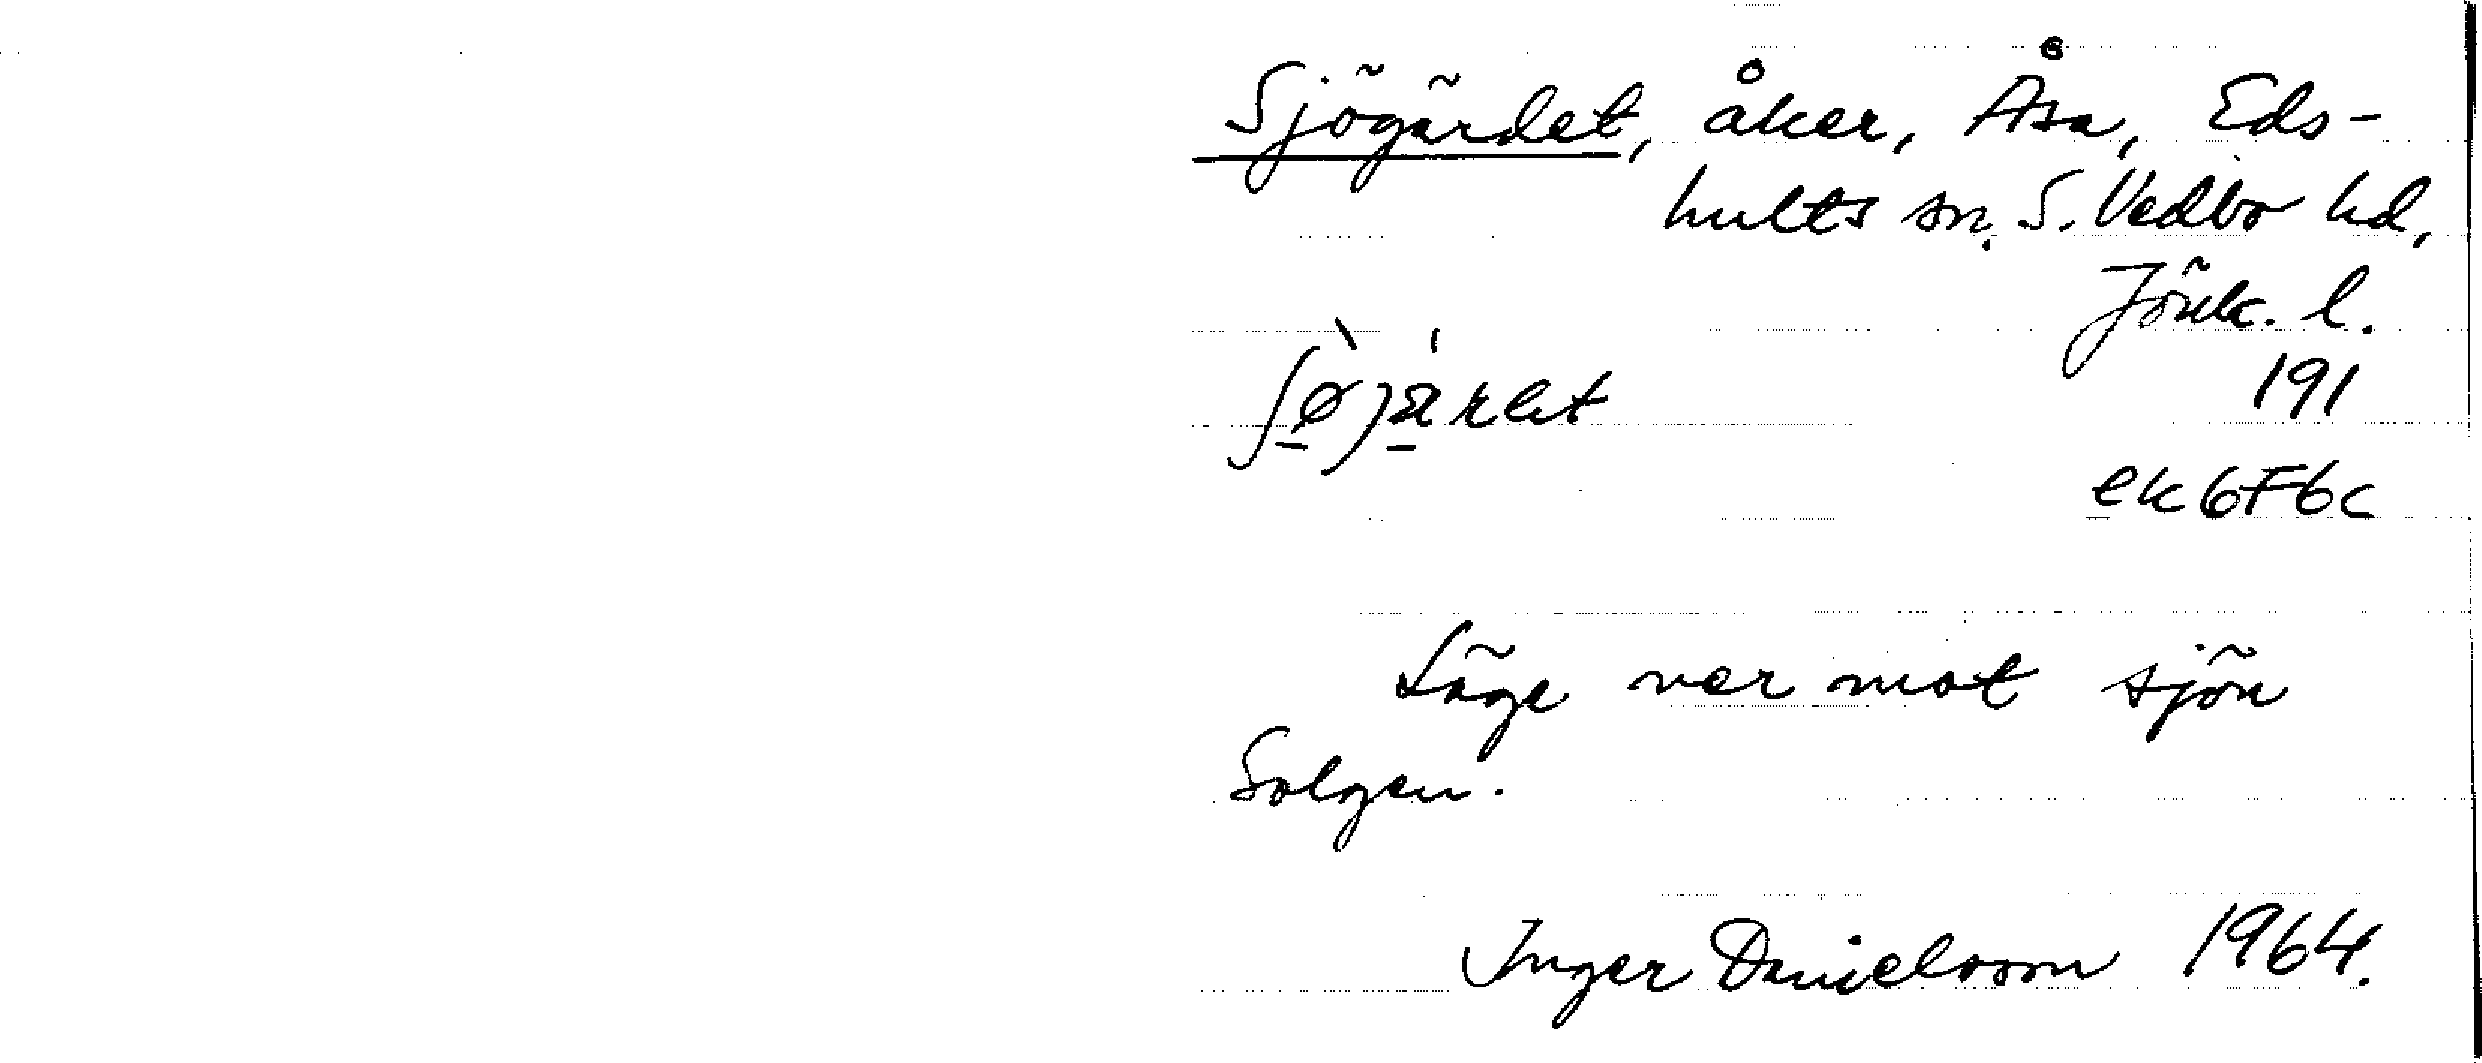 Sjögärdet, åker, Åsa, Eds-
hults sn. S. Vedbo hd,
Jönk. l.
ʃø̠̀jä̠́ret
191
ek 6F6c
Läge ner mot sjön
Solgen.
Inger Danielsson 1964.